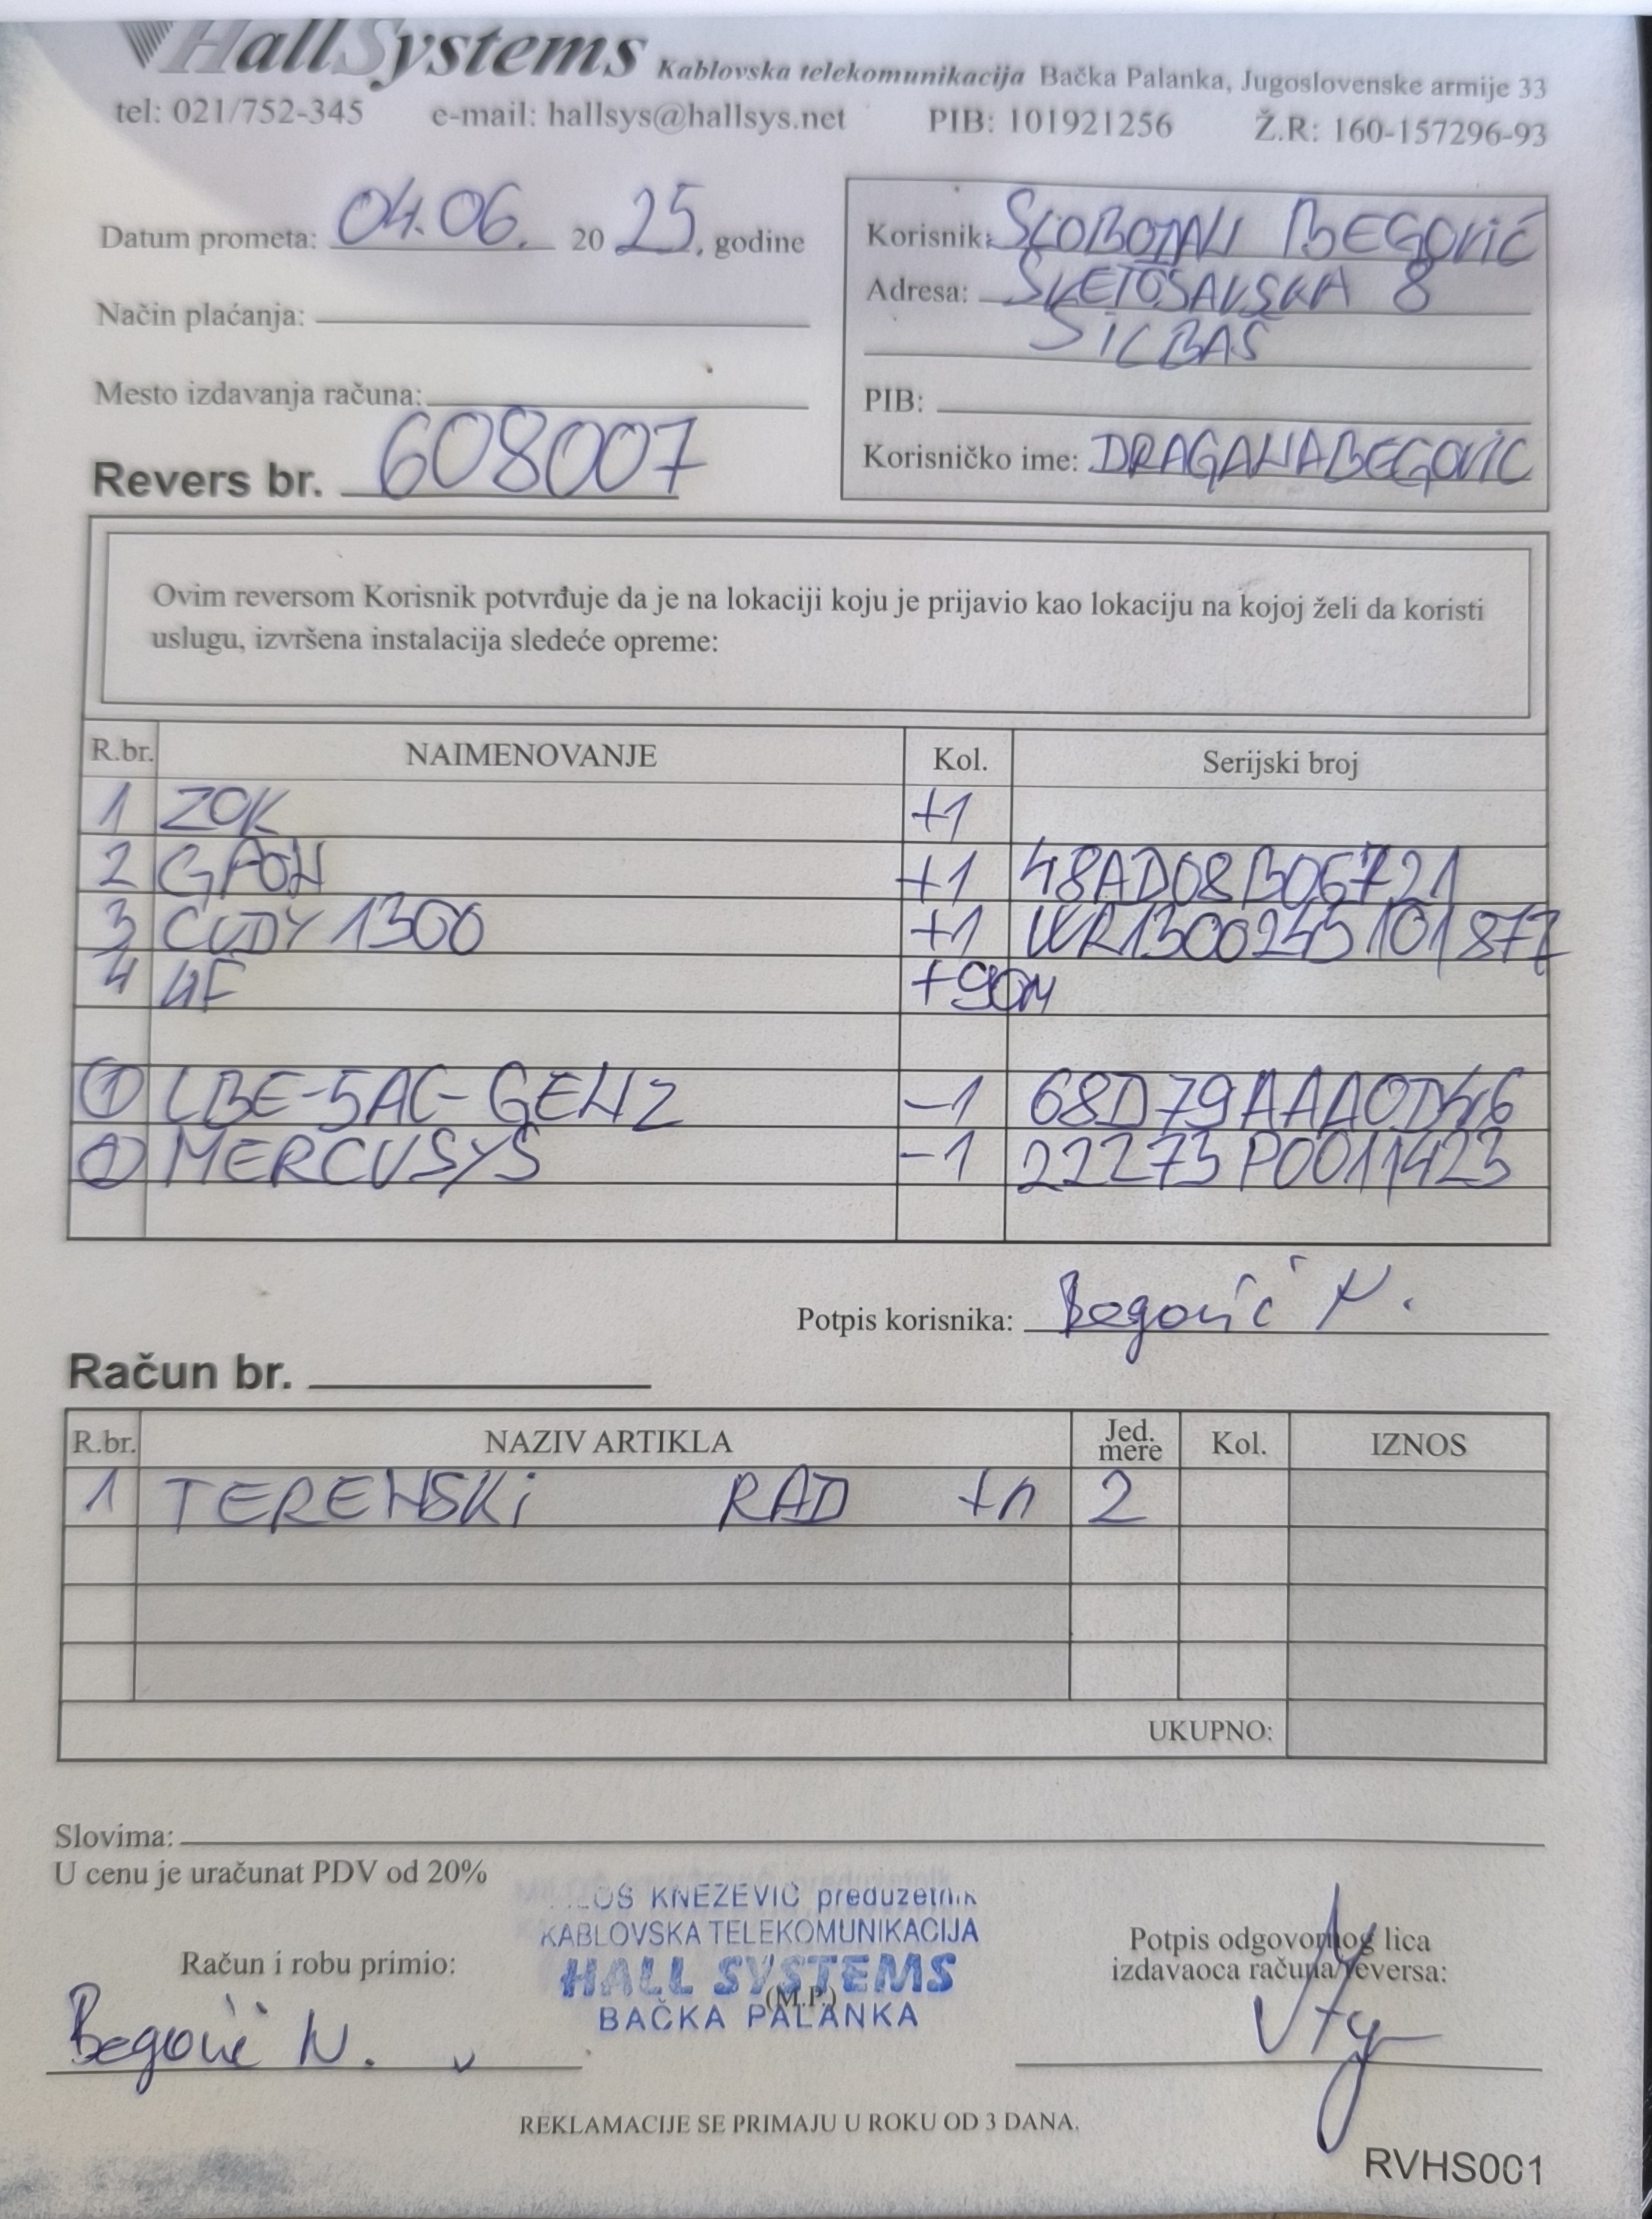 HallSystems Kablovska telekomunikacija Bačka Palanka, Jugoslovenske armije 33
tel: 021/752-345 e-mail: hallsys@hallsys.net PIB: 101921256 Ž.R: 160-157296-93
Datum prometa: 04.06. 2025. godine
Način plaćanja:
Mesto izdavanja računa:
Revers br. 608007
Korisnik: SLOBODAN BEGOVIĆ
Adresa: SVETOSAVSKA 8
SILBAŠ
PIB:
Korisničko ime: DRAGANABEGOVIC
Ovim reversom Korisnik potvrđuje da je na lokaciji koju je prijavio kao lokaciju na kojoj želi da koristi
uslugu, izvršena instalacija sledeće opreme:
R.br. NAIMENOVANJE Kol. Serijski broj
1 ZOK +1
2 GPON +1 48AD08B06721
3 CUDY 1300 +1 WR1300245101877
4 +90M
1 LBE-5AC-GEN2 -1 68D79AAA0D46
2 MERCUSYS -1 22273P0011423
Potpis korisnika: Begović N.
Račun br.
R.br. NAZIV ARTIKLA Jed. mere Kol. IZNOS
1 TERENSKI RAD +n 2
UKUPNO:
Slovima:
U cenu je uračunat PDV od 20%
KNEZEVIĆ preduzetnik
KABLOVSKA TELEKOMUNIKACIJA
HALL SYSTEMS
(M.P.)
BAČKA PALANKA
Račun i robu primio:
Begović N.
Potpis odgovornog lica
izdavaoca računa/reversa:
REKLAMACIJE SE PRIMAJU U ROKU OD 3 DANA.
RVHS001